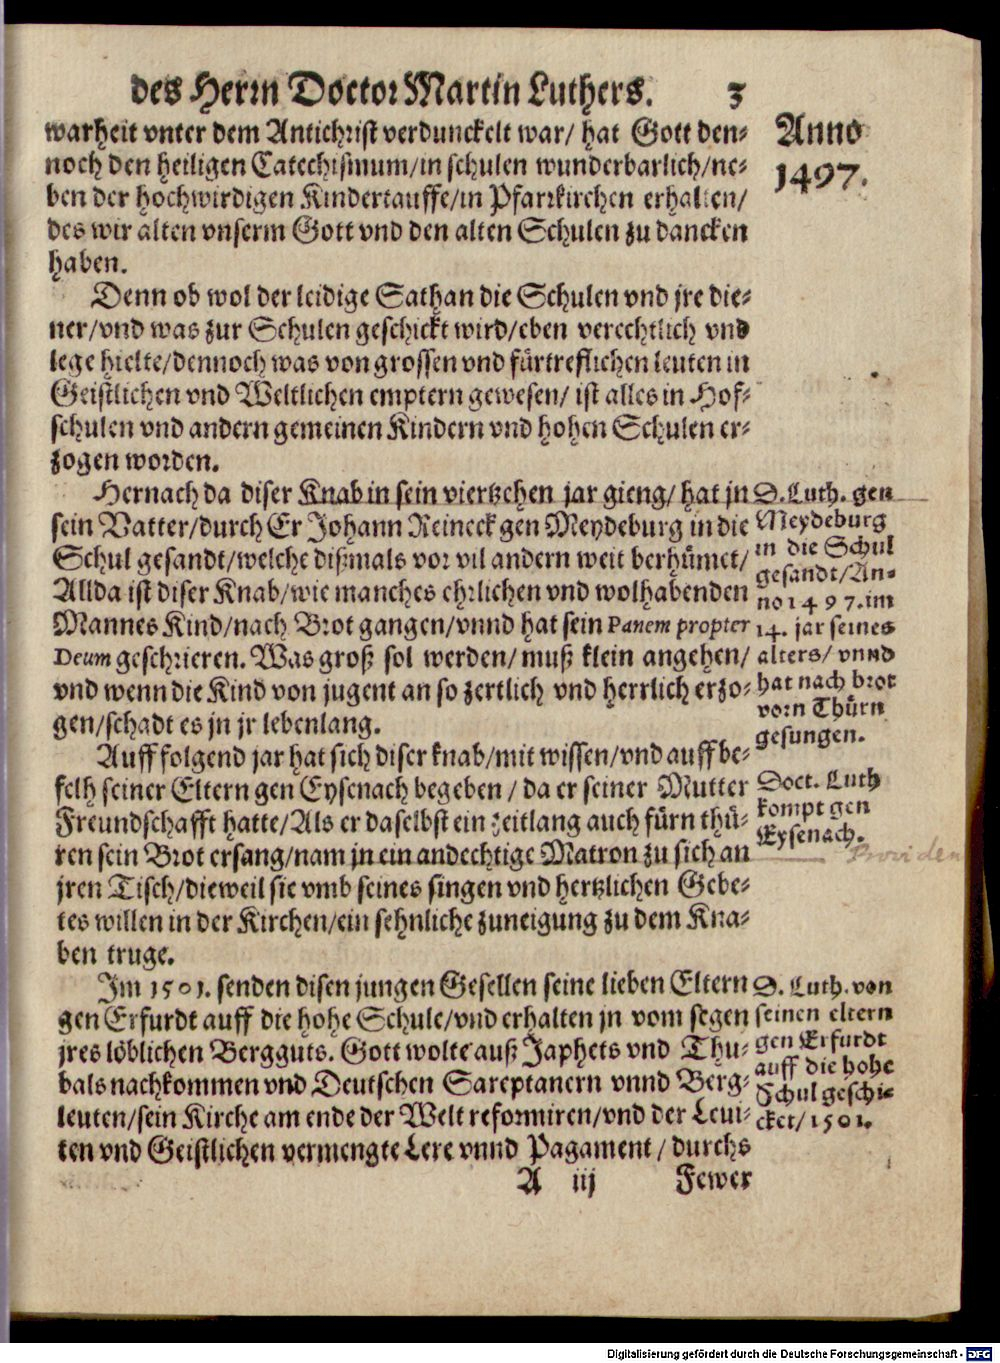 des Herrn Doctor Martin Luthers. 3
warheit vnter dem Antichrist verdunckelt war/ hat Gott den⸗
noch den heiligen Catechismum/in schulen wunderbarlich/ne⸗
ben der hochwirdigen Kindertauffe/in Pfarrkirchen erhalten/
des wir alten vnserm Gott vnd den alten Schulen zu dancken
haben.
Anno
1497.
Denn ob wol der leidige Sathan die Schulen vnd jre die⸗
ner/vnd was zur Schulen geschickt wird/eben verechtlich vnd
lege hielte/dennoch was von grossen vnd fürtreflichen leuten in
Geistlichen vnd Weltlichen emptern gewesen/ ist alles in Hof⸗
schulen vnd andern gemeinen Kindern vnd hohen Schulen er⸗
zogen worden.
Hernach da diser Knab in sein viertzehen jar gieng/ hat jn
sein Vatter/durch Er Johann Reineck gen Meydeburg in die
Schul gesandt/welche dißmals vor vil andern weit berhümet/
Allda ist diser Knab/wie manches ehrlichen vnd wolhabenden
Mannes Kind/nach Brot gangen/vnnd hat sein Panem propter
Deum geschrieren. Was groß sol werden/ muß klein angehen/
vnd wenn die Kind von jugent an so zertlich vnd herrlich erzo⸗
gen/schadt es jn jr lebenlang.
D. Luth. gen
Meydeburg
in die Schul
gesandt/An⸗
no 1497. im
14. jar seines
alters/ vnnd
hat nach brot
vorn Thürn
gesungen.
Auff folgend jar hat sich diser knab/mit wissen/vnd auff be⸗
felh seiner Eltern gen Eysenach begeben/ da er seiner Mutter
Freundschafft hatte/Als er daselbst ein zeitlang auch fürn thü⸗
ren sein Brot ersang/nam jn ein andechtige Matron zu sich an
jren Tisch/dieweil sie vmb seines singen vnd hertzlichen Gebe⸗
tes willen in der Kirchen/ein sehnliche zuneigung zu dem Kna⸗
ben truge.
Doct. Luth
kompt gen
Eysenach.
Providen
Im 1501. senden disen jungen Gesellen seine lieben Eltern
gen Erfurdt auff die hohe Schule/vnd erhalten jn vom segen
jres löblichen Bergguts. Gott wolte auß Japhets vnd Thu⸗
bals nachkommen vnd Deutschen Sareptanern vnnd Berg⸗
leuten/sein Kirche am ende der Welt reformiren/vnd der Leui⸗
ten vnd Geistlichen vermengte Lere vnnd Pagament/ durchs
D. Luth. von
seinen eltern
gen Erfurdt
auff die hohe
Schul geschi⸗
cket/ 1501.
A iij Fewer
Digitalisierung gefördert durch die Deutsche Forschungsgemeinschaft - DFG